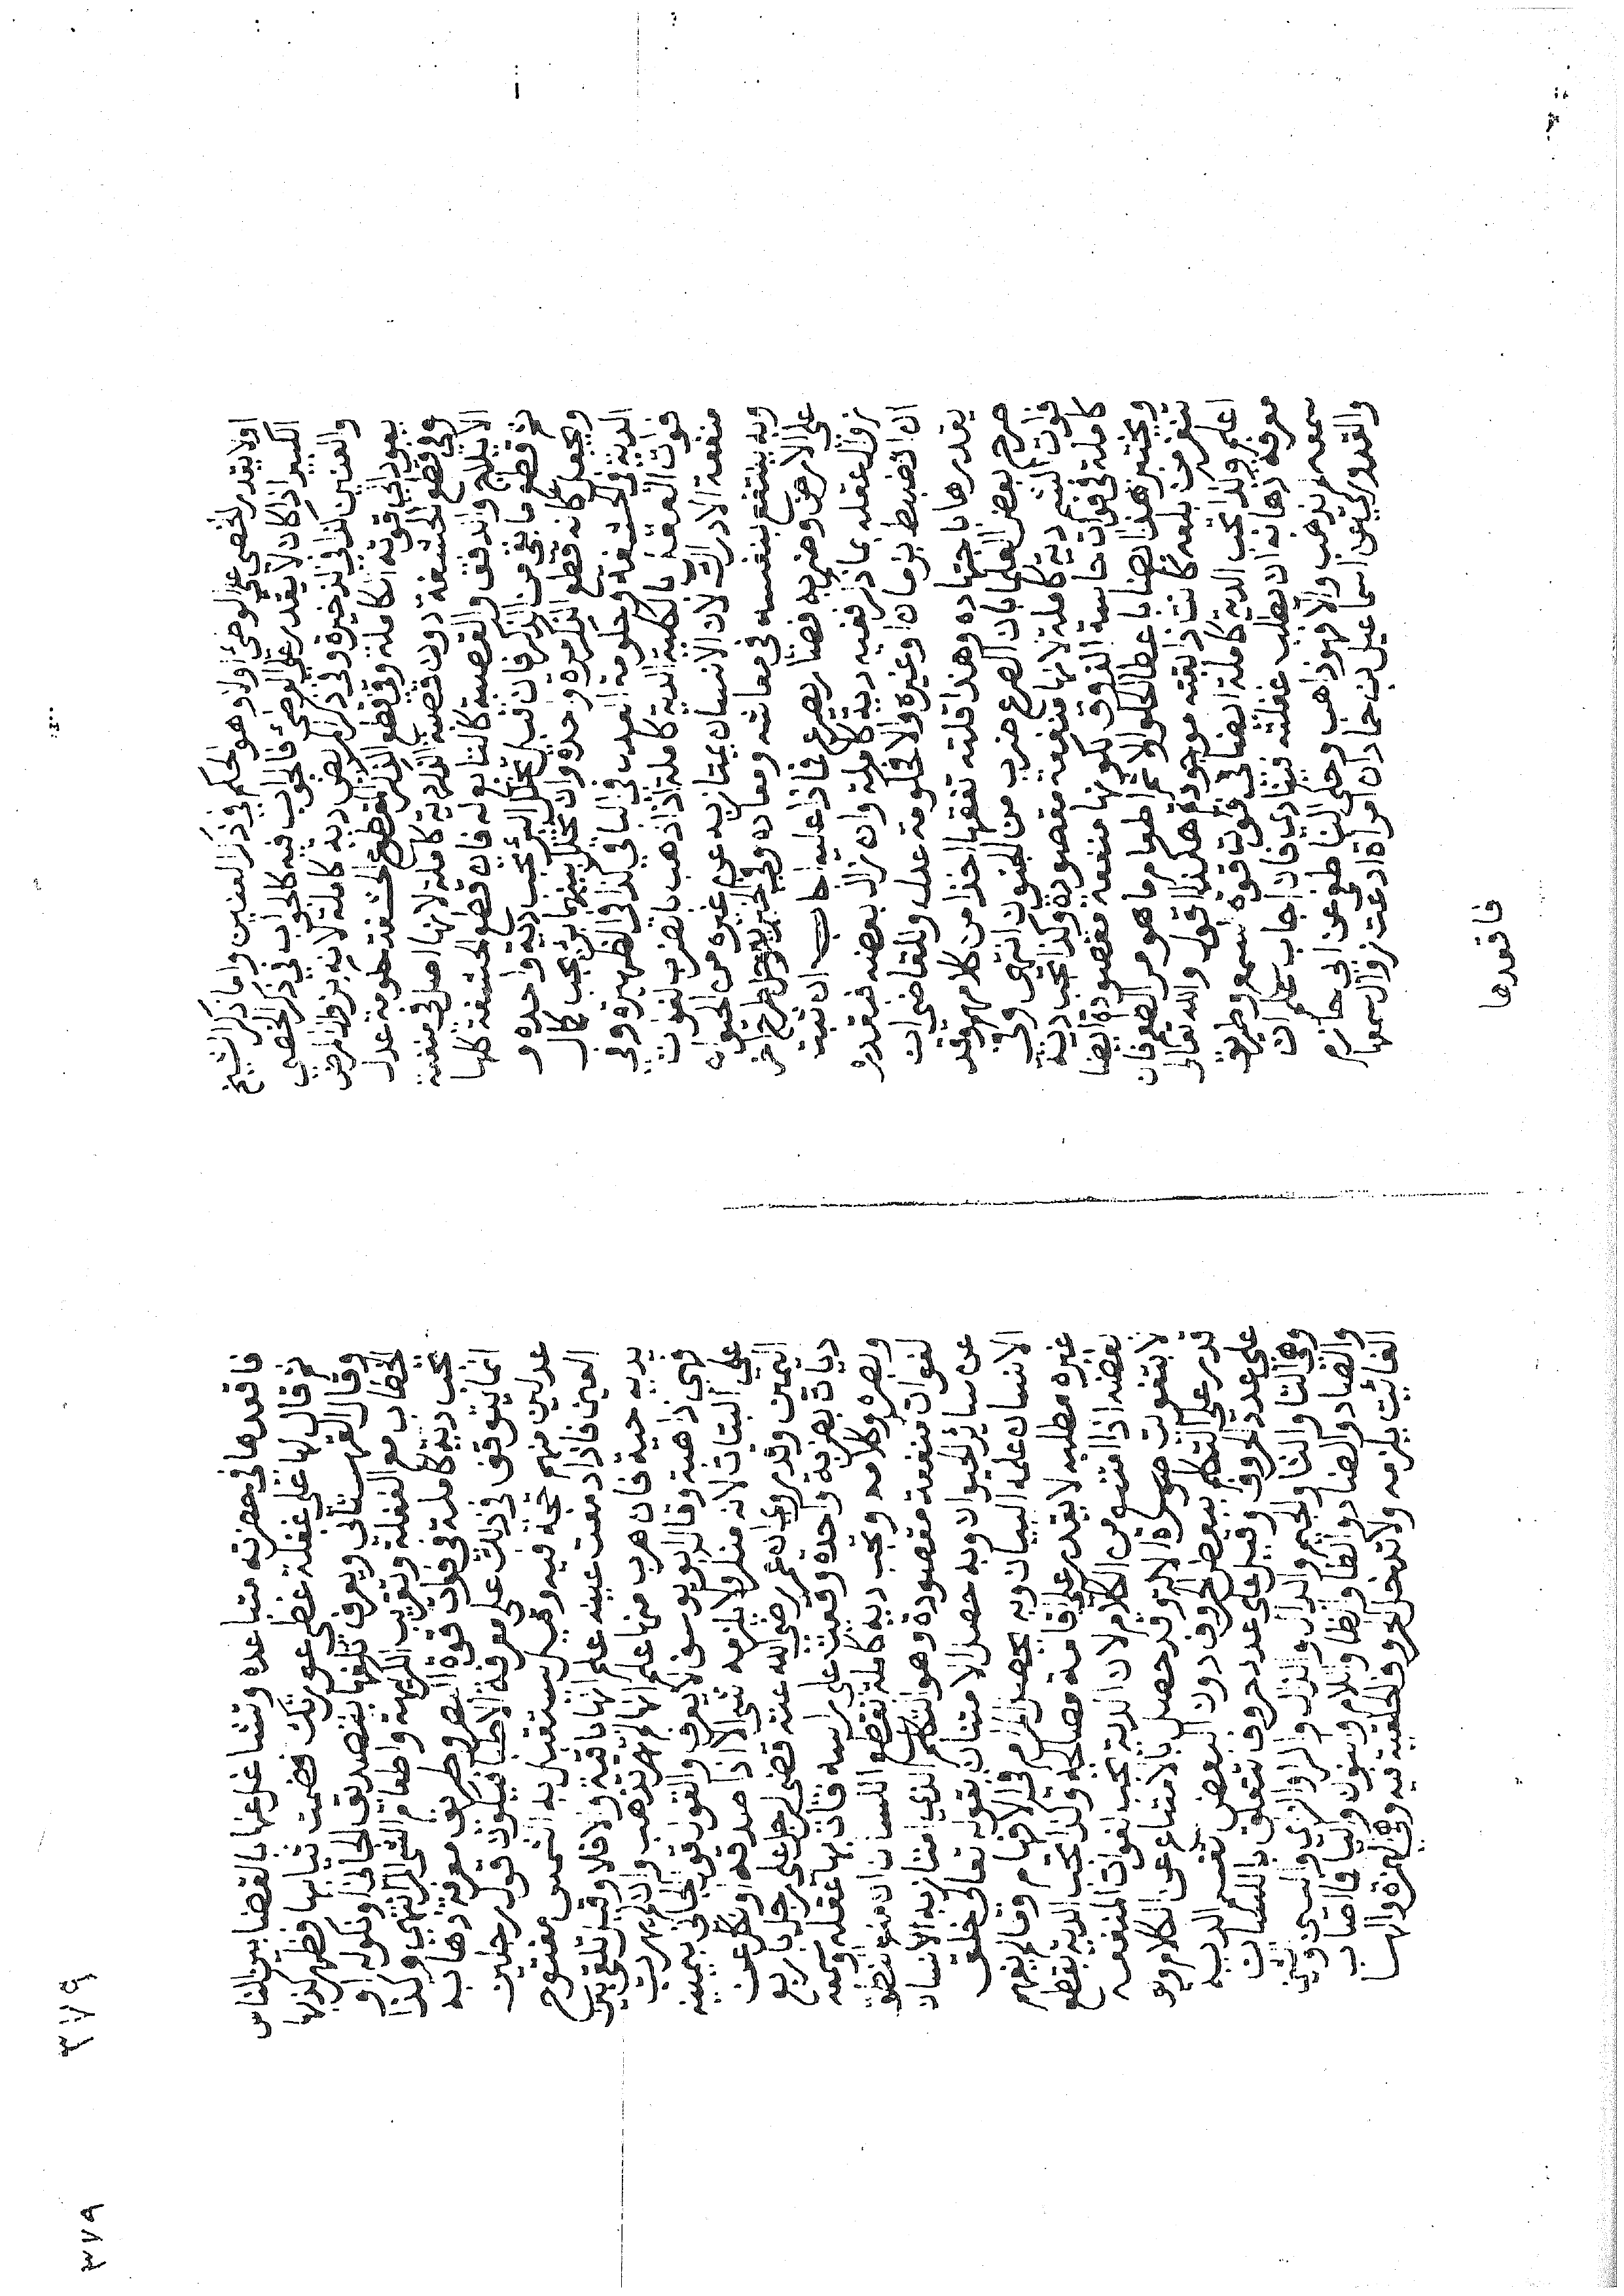 اولا يقدر الخصي على الوطئ اولا وهو الحكم في ذكر العنين واما ذكر الشيخ
الكبير اذا كان لا يقدر على الوطئ فالجواب فيه كالجواب في ذكر الخصي
والعنين كذا في الذخيرة وفي ذكر المريض دية كاملة لانه بزوال المرض
يعود الى قوته الكاملة وفي قطع الذكر المقطوع الحشفة حكومة عدل
وفي قطع الحشفة دون قصبة الذكر دية كاملة لانها اصل في منفعة
الايلاج والدفق والقصبة كالتابع له فان قطع الحشفة كلها
ثم قطع ما بقي من الذكر فان قبل تخلل البرئ تجب دية واحدة و
ويجعل كانه قطع الذكر بمرة واحدة وان تخلل بينهما برئ يجب كمال
الدية في الحشفة وحكومة العدل في الباقي كذا في الظهيرة وفي
فوات العقل بالكلية الدية كاملة اذا ذهب بالضرب لفوات
منفعة الادراك لان الانسان يمتاز به عن غيره من الحيوان
وبه ينتفع بنفسه في معاشه ومعاده وفي الخيرية رجل طرح اخر
على الارض وضربه فصار يصرع فماذا عليه اجاب ان ثبت
زوال عقله بما ذكر ففيه دية كاملة وان زال بعضه فبقدره
ان انضبط بزمان او غيره والا فحكومة عدل وللقاضي ان
يقدرها باجتهاده وهذا قلته تفقها اخذا من كلامهم وقد
صرح بعض العلما بان الصرع ضرب من الجنون انتهى وفي
فوات الشم دية كاملة لانها منفعة مقصودة وكذا تجب دية
كاملة في فوات حاسة الذوق لكونها منفعة مقصودة ايضا
ويختبر هذا ايضا باعطا الحلو والا ثم اطعام ما هو مر الطعم فان
تنفر من بلعه كانت ذايقته موجودة هكذا اقول والله تعالى
اعلم وكذا تجب الدية كاملة ايضا في فوات قوة السمع وطريق
معرفة ذهابه ان تطلب غفلته فينادي فان اجاب علم ان
سمعه لم يذهب والا فهو ذاهب وحكى الناطفي عن ابي حازم
والقدوري عن اسماعيل بن حماد ان امراة ادعت زوال سمعها
فاقعدها
٣٧٩
٣٧٩
فاقعدها في حضرته متباعدة وتشاغل عنها بالقضا بين الناس
ثم قال لها على غفلة غطي عورتك فضمت ثيابها فظهر كذبها
وقال القهستاني ويعرف تلفها بتصديق الجاني او نكوله او
الخطاب مع الغفلة وتقريب الكريهة واطعام الشئ المر انتهى وكذا
تجب دية كاملة في فوات قوة البصر وطريق معرفة ذهابه
انما يتوقف في ذلك على معرفة الاطبا فيكون قول رجلين
عدلين منهم حجة فيه وقيل يستقبل به الشمس مفتوح
العين فاذا دمعت عينه علم انها باقية والا فلا وقيل تلقى بين
يديه حية فان هرب منها علم انها لم تذهب وان لم يهرب
فهي ذاهبة وقال ابو يوسف لا يعرف والقول قول الجاني بيمينه
على البتات لانه منكر ولا يلزمه شئ الا اذا صدقه او نكل عن
اليمين وقد روي ان عمر رضي الله عنه قضى لرجل على رجل باربع
ديات بضربة واحدة وقعت على راسه فات بها عقله وسمعه
وبصره وكلامه وتجب دية كاملة بقطع اللسان ان منع النطق
لفوات منفعة مقصودة وهو التكلم الذي امتاز به الانسان
عن سائر الحيوان وبه حصل الامتنان بقوله تعالى خلق
الانسان علمه البيان وبه يحصل المرام في الافهام وما لم يفهم
غيره مطلبه لا يقدر على اقامة مصالحه وكذا تجب الدية بقطع
بعضه اذا منع من الكلام لان الدية تجب لفوات المنفعة
لا بتفويت صورة الالة وقد حصل بالامتناع عن الكلام ولو
قدر على التكلم ببعض الحروف دون البعض تقسم الدية
على عدد الحروف وقيل على عدد حروف تتعلق باللسان
وهي التا والثا والجيم والدال والذال والرا والزاي والسين والشين
والصاد والضاد والطا والظا واللام والنون واليا فما اصاب
الفائت يلزمه ولا تدخل الحروف الحلقية فيه وهي الهمزة والها